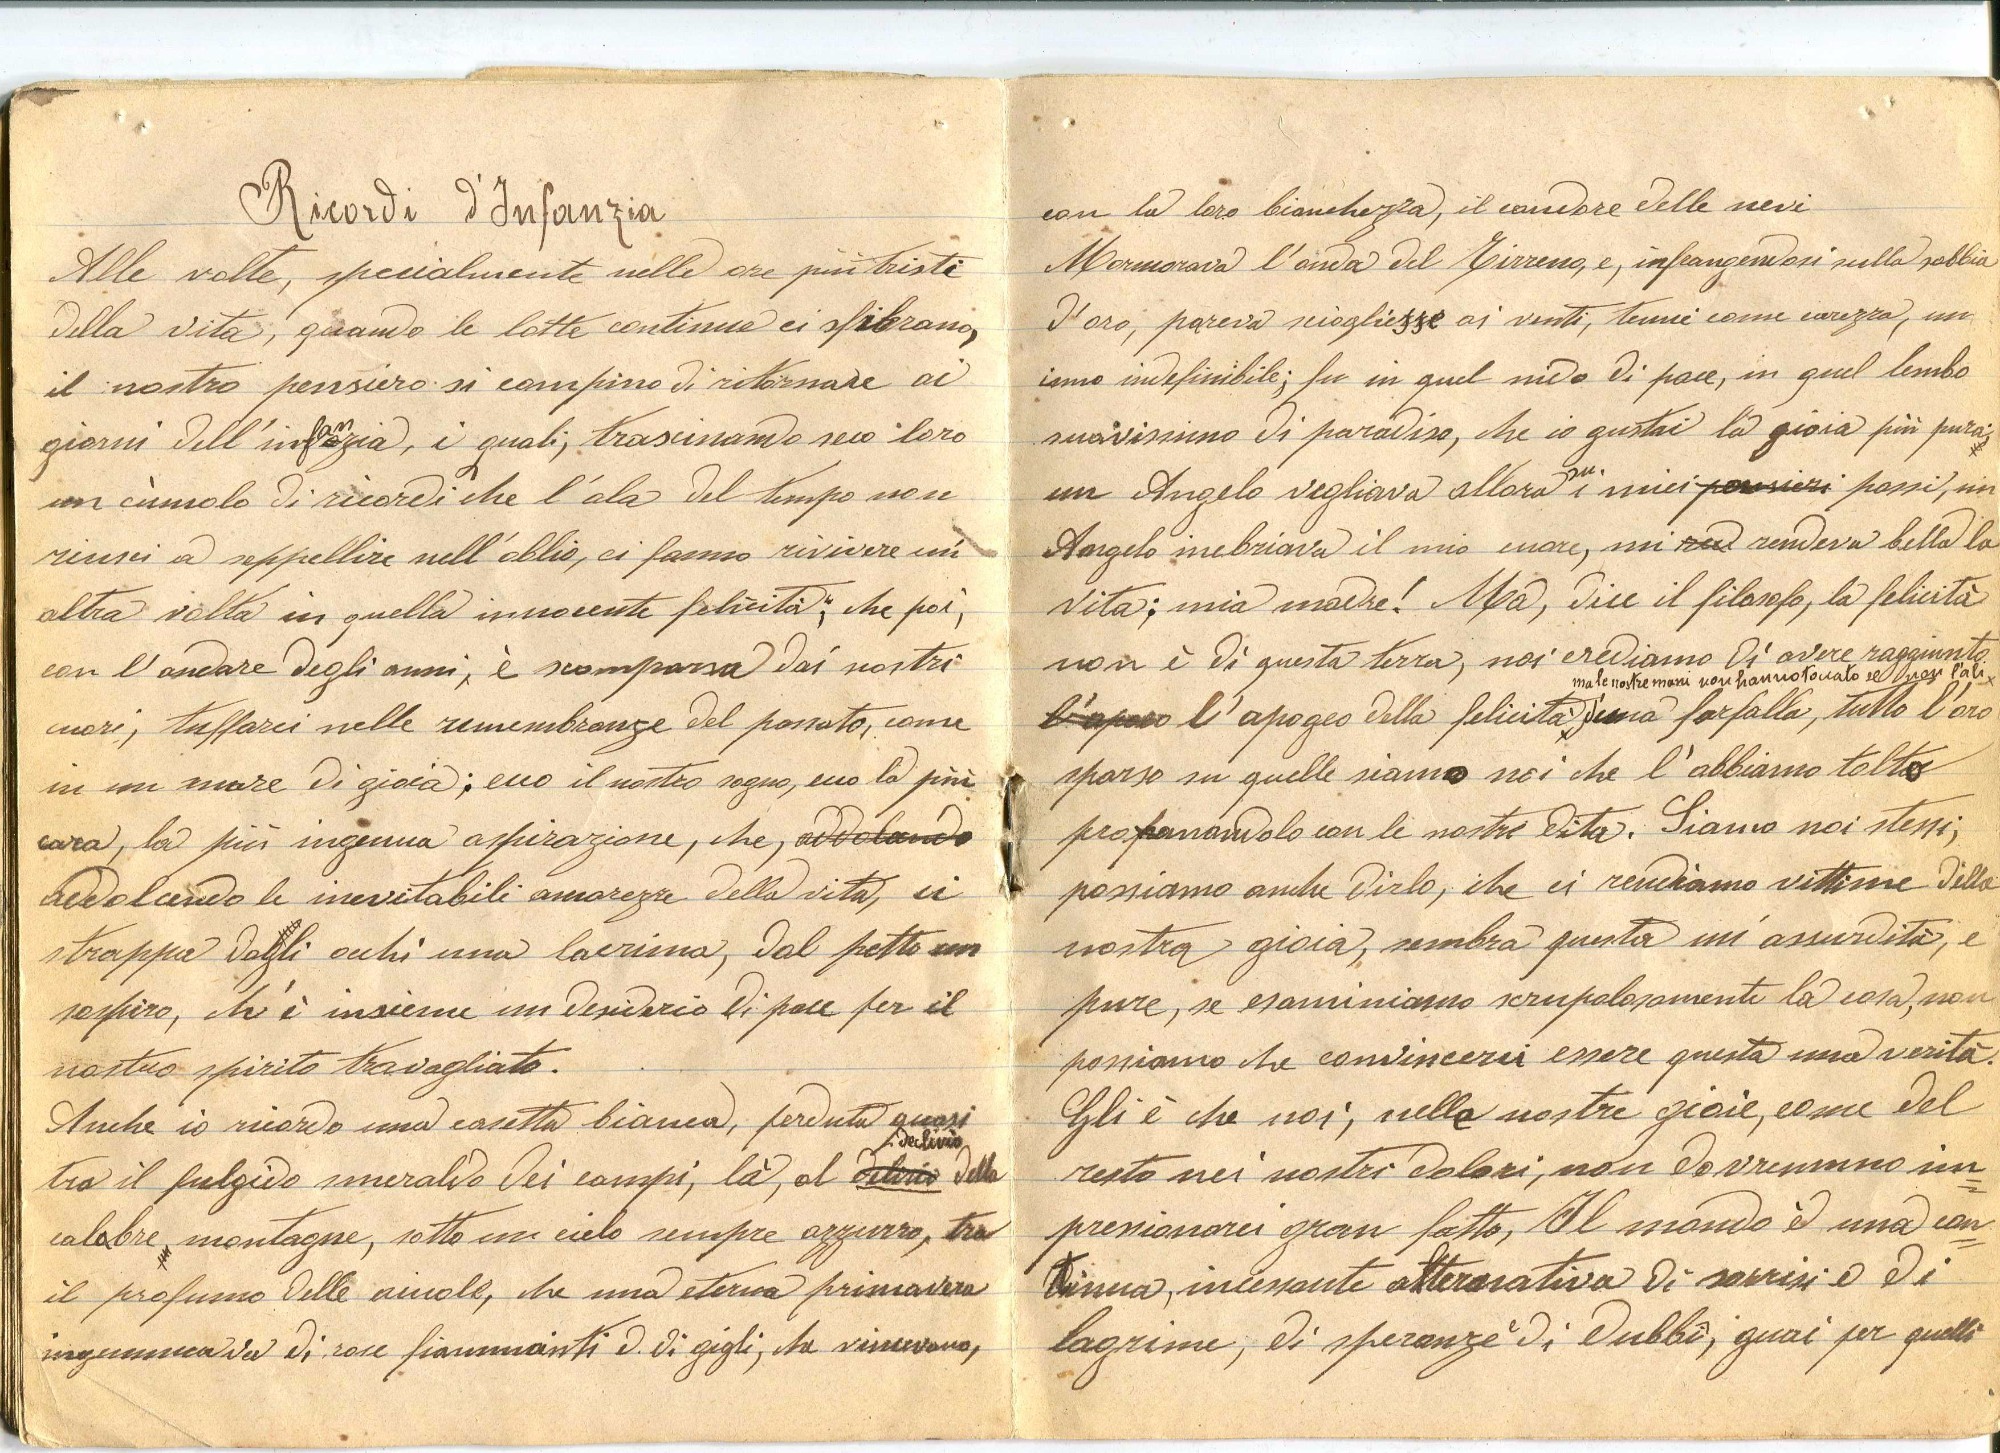 Ricordi d'Infanzia
Alle volte, specialmente nelle ore più tristi
della vita, quando le lotte continue ci sfibrano,
il nostro pensiero si compino di ritornare ai
giorni dell'infanzia, i quali, trascinando seco loro
un cùmolo di ricordi che l'ala del tempo non
riuscì a seppellire nell'oblio, ci fanno rivivere un'
altra volta in quella innocente felicità; che poi,
con l'andare degli anni, è scomparsa dai nostri
cuori, tuffarci nelle rimembranze del passato, come
in un mare di gioia; ecco il nostro sogno, ecco la più
cara, la più ingenua aspirazione, che, addolando
addolcendo le inevitabili amarezze della vita, ci
strappa dagli occhi una lacrima, dal petto un
sospiro, ch'è insieme un desiderio di pace per il
nostro spirito travagliato.
Anche io ricordo una casetta bianca, perduta quasi
tra il fulgido smeraldo dei campi, là, al delirio declivio della
calabre montagne, sotto un cielo sempre azzurro, tra
il profumo delle aiuole, che una eterna primavera
ingemmava di rose fiammanti e di gigli, che vincevano,
con la loro bianchezza, il candore delle nevi
Mormorava l'onda del Tirreno, e, infrangendosi sulla sabbia
d'oro, pareva sciogliesse ai venti, tenui come carezza, un
inno indefinibile; fu in quel nido di pace, in quel lembo
suavissimo di paradiso, che io gustai la gioia più pura;
un Angelo vegliava allora su i miei pensieri passi, un
Angelo inebriava il mio cuore, mi rendeva bella la
vita; mia madre! Ma, dice il filosofo, la felicità
non è di questa terra, noi crediamo di avere raggiunto
ma le nostre mani non hanno toccato se non l'ali
l'apoco l'apogeo della felicità, d'una farfalla, tutto l'oro
sparso su quelle siamo noi che l'abbiamo tolto
profanandolo con le nostre dita. Siamo noi stessi,
possiamo anche dirlo, che ci rendiamo vittime della
nostra gioia, sembra questa un'assurdità, e
pure, se esaminiamo scrupolosamente la cosa, non
possiamo che convincerci essere questa una verità.
Gli è che noi, nelle nostre gioie, come del
resto nei nostri dolori, non dovremmo im=
pressionarci gran fatto, Il mondo è una con=
tinua, incessante alternativa di sorrisi e di
lagrime, di speranze e di dubbî, guai per quelli